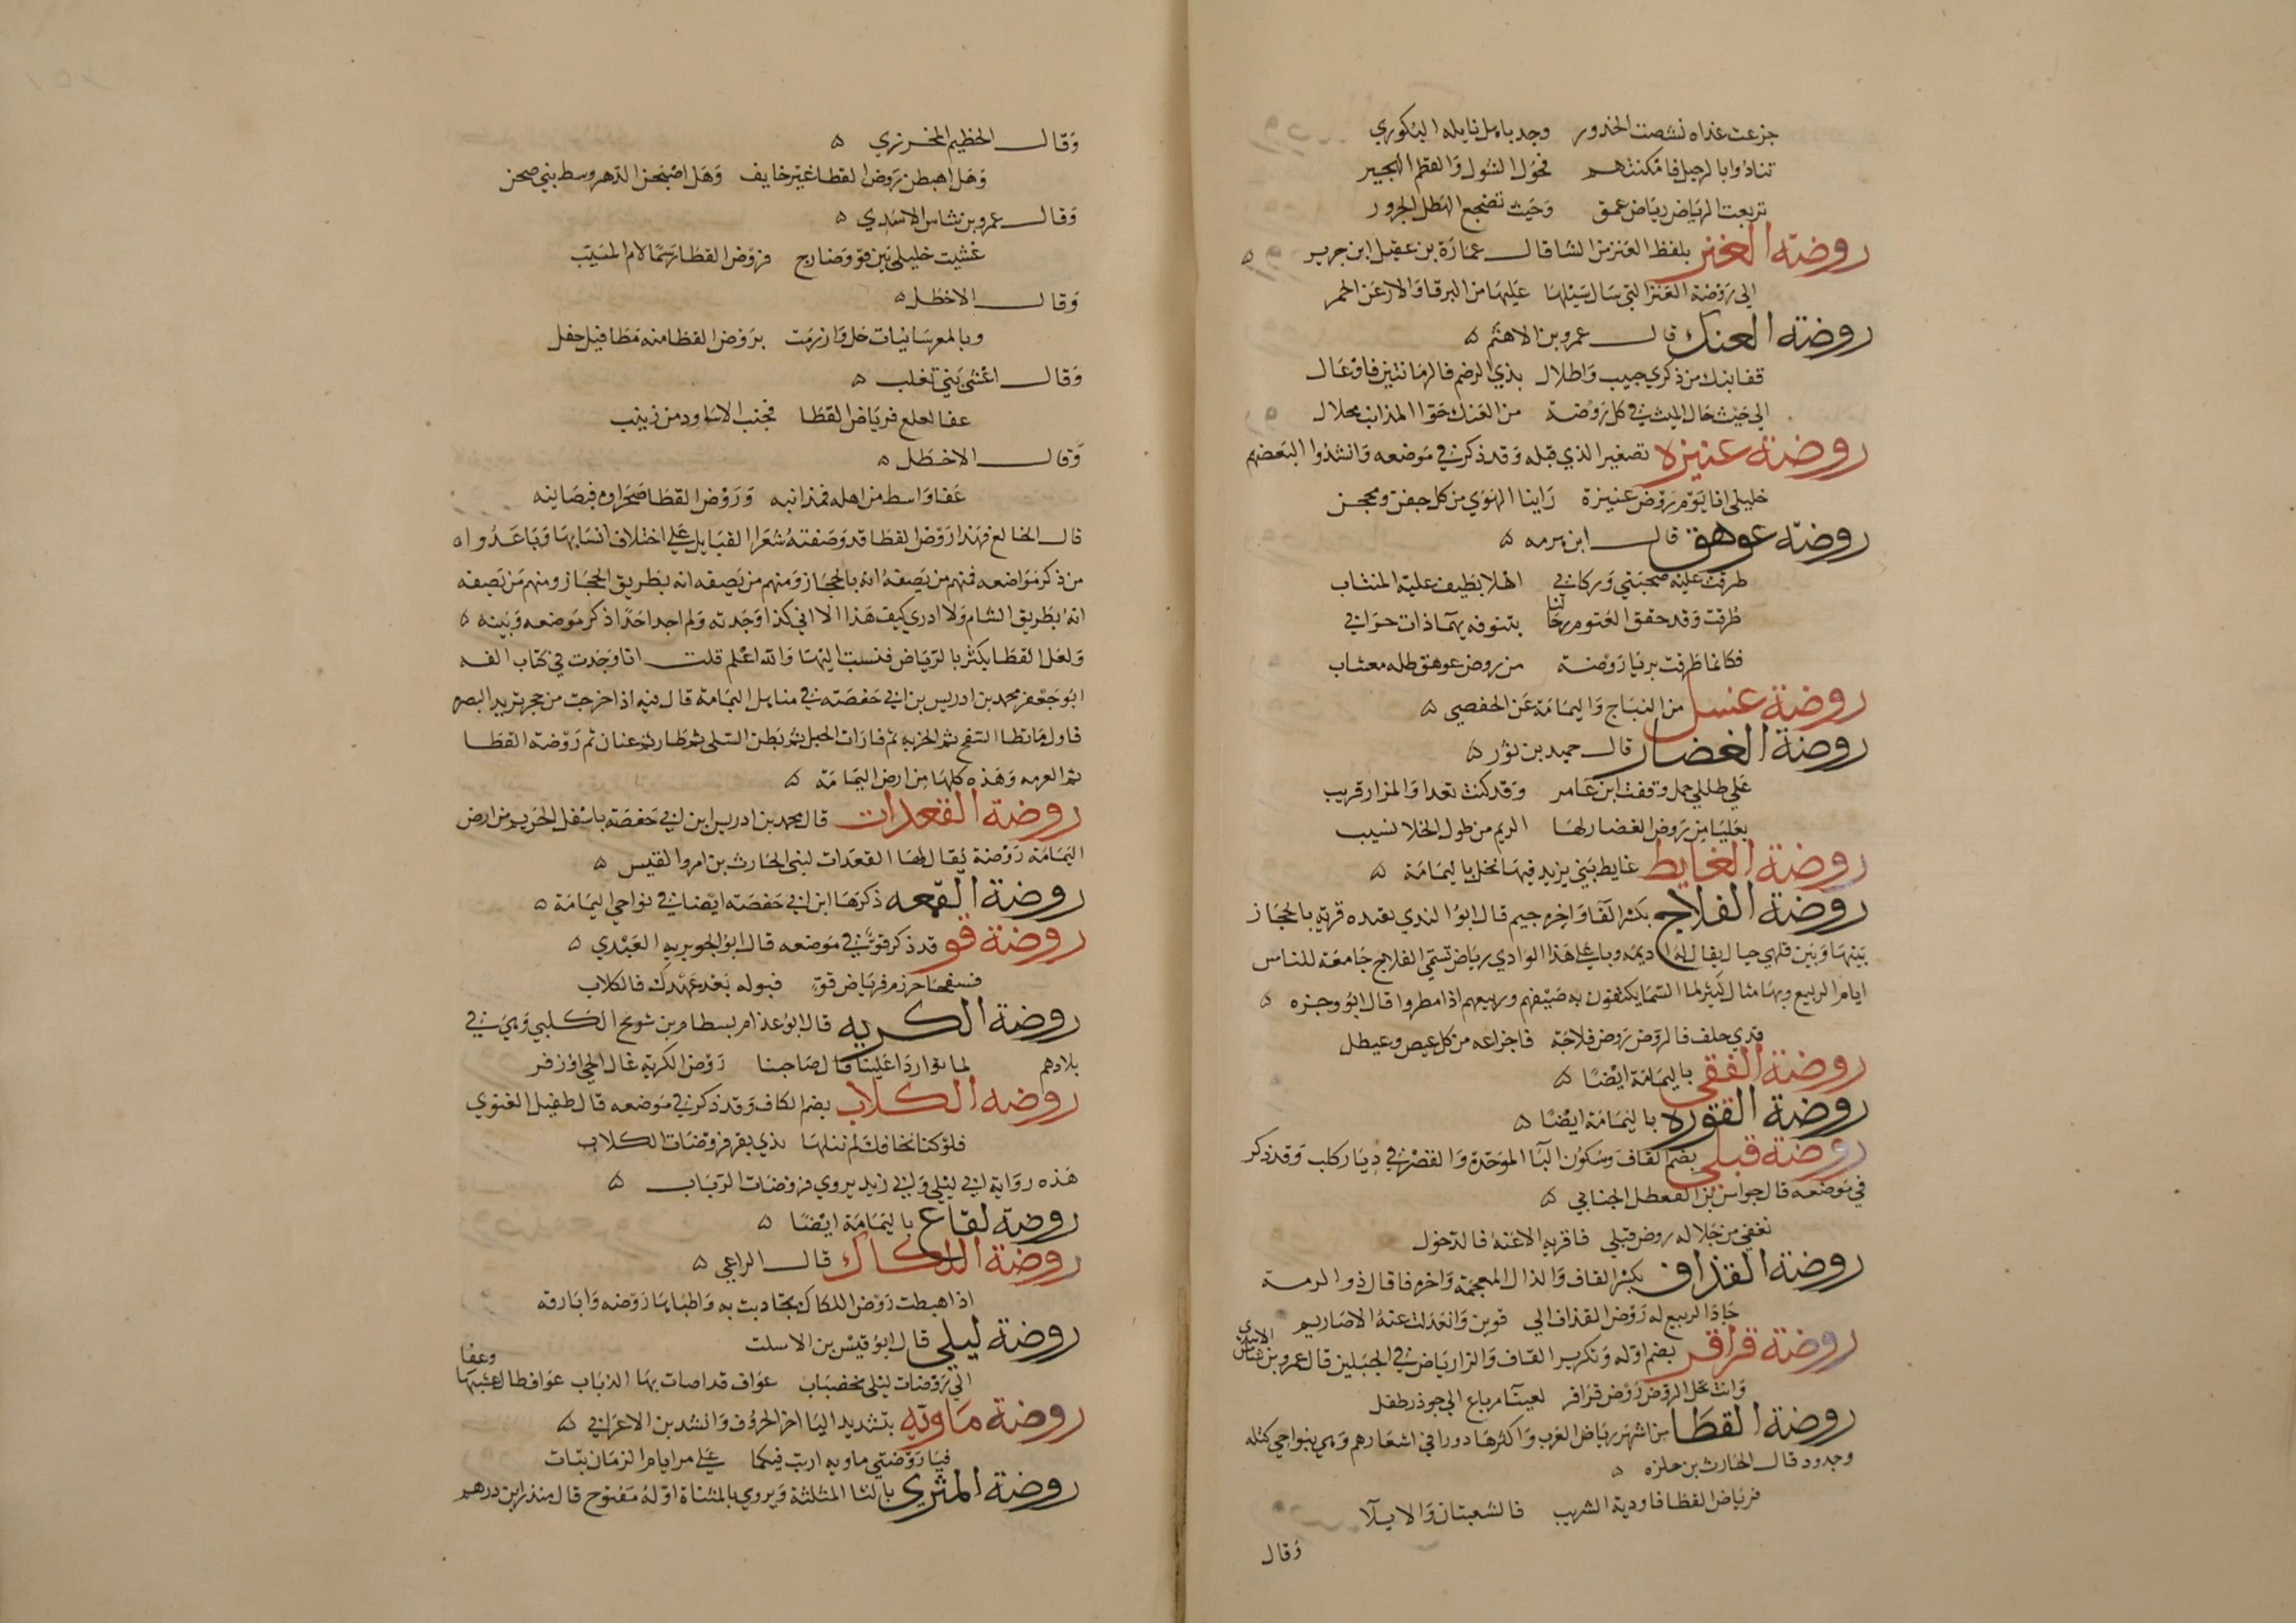 جزعت غداه نشصت الخدور وجد باهل نايله البكوري
تنادوا بالرحيل فامكنتهم فحول الشول والقطم الهجير
تربعت الرياض رياض عمق وحيث تضجع الهطل الجرور
روضة العنز بلفظ العنز من الشا قال عمارة بن عقيل ابن جرير ه
الي روضة العنز التي سال سيلها عليها من البرقا والارعن الحمر
روضة العنك قال عمرو بن الاهتم ه
قفا نبك من ذكري حبيب واطلال بذي الرضم فالرمانتين فاوعال
الي حيث حال الميث في كل روضة من العنك حوا المذانب محلال
روضة عنيزه تصغير الذي قبله وقد ذكر في موضعه وانشدوا لبعضهم
خليلي انا يوم روض عنيزة راينا الهوي من كل جفن ومحجن
روضة عوهق قال ابن هرمه ه
طرقت علية صحبتي وركابي اهلا بطيف علية المنتاب
طرقت وقد خفق العتوم رحالنا بتنوفه يهماذات خرابي
فكانما طرقت بريا روضة من روض عوهق طله معشاب
روضة عنسل من النباج واليمامة عن الحفصي ه
روضة الغضار قال حميد بن ثور ه
علي طللي جمل وقفت ابن عامر وقد كنت تعدا والمزار قريب
بعليا من روض الغضار لها الريم من طول الخلا نسيب
روضة الغايط غايط بني يزيد فيها نخل باليمامة ه
روضة الفلاج بكسر الفا واخره جيم قال ابو الندي بعده قرية بالحجاز
بينها وبين قلهي جبال يقال لها ديمه وباعلي هذا الوادي رياض تسمي الفلاج جامعة للناس
ايام الربيع وبها مثال كثير لما السما يكتفون به صيفهم وربيعهم اذا مطروا قال ابو وجزه ه
قدي حلف فالروض روض فلاجة فاجزاعه من كل عيص وعيطل
روضة الفقي باليمامة ايضا ه
روضة القوره باليمامة ايضا ه
روضة قبلي بضم القاف وسكون البا الموحدة والقصر في ديار كلب وقد ذكر
في موضعه قال جواس بن القعطل الجنابي ه
تعفي من جلاله روض قبلي فاقريه الاعنة فالدخول
روضة القذاف بكسر القاف والذال المعجمة واخره فا قال ذو الرمة
جاد الربيع له روض القذاف الي قوين وانعدلت عنه الاصاريم
روضة قراقر بضم اوله وتكرير القاف والرا رياض في الجبلين قال عمرو بن شاس الاسدي
وانت تحل الروض روض قراقر لعينا مرباع الي جوذر طفل
روضة القطا من اشهر رياض العرب واكثرها دورا في اشعارهم وهي بنواحي كتله
وجدود قال الحارث بن حلزه ه
فرياض القطا فاودية الشريب فالشعبتان والايلا
وقال
وقال الخطيم المحرزي ه
وهل اهبطن روض القطا غير خايف وهل اصبحن الدهر وسط بني صحن
وقال عمرو بن شاس الاسدي ه
غشيت خليلي بين قو وضارج فروض القطا رسما لام المسيب
وقال الاخطل ه
وبالمعرسانيات حل وارزمت بروض القطا منه مطافيل حفل
وقال اعشي بني تغلب ه
عفا لعلع فرياض القطا فجنب الاساود من زينب
وقال الاخطل ه
عفا واسط من اهله فمذانبه وروض القطا صحراوه فبصايبه
قال الخالع فهذا روض القطا قد وصفته شعرا القبايل علي اختلاف انسابها وتباعدوا ه
من ذكر مواضعه فمنهم من يصفه انه بالحجاز ومنهم من يصفه انه بطريق الحجاز ومنهم من يصفه
انه بطريق الشام ولا ادري كيف هذا الا اني كذا وجدته ولم اجد احدا ذكر موضعه وبينه ه
ولعل القطا يكثر بالرياض فنسبت اليها والله اعلم قلت انا وجدت في كتاب الفه
ابو جعفر محمد بن ادريس بن ابي حفصة في مناهل اليمامة قال فيه اذا خرجت من حجر تريد البصره
فاول ما تطا السفح ثم الخربه ثم قارات الحبل ثم بطن السلي ثم طار ثم عنان ثم روضة القطا
ثم العرمه وهذه كلها من ارض اليمامة ه
روضة القعدات قال محمد بن ادريس ابن ابي حفصة باسفل الخريم من ارض
اليمامة روضة يقال لها القعدات لبني الحارث بن امرو القيس ه
روضة القمعه ذكرها ابن ابي حفصة ايضا في نواحي اليمامة ه
روضة قو قد ذكر قو في موضعه قال ابو الجويريه العبدي ه
فسفحا حزرم فرياض قو فبوله بعد عهدك فالكلاب
روضة الكريه قال ابو عذام بسطام بن شويح الكلبي وهي في
بلادهم لما تواردا علينا قال صاحبنا روض الكرية غال الحي او زفر
روضه الكلاب بضم الكاف وقد ذكر في موضعه قال طفيل الغنوي
فلو كنا نخافك لم ننلها بذي بقر فروضات الكلاب
هذه رواية ابي ليلي وابي زيد يروي فروضات الرباب ه
روضة لقاع باليمامة ايضا ه
روضة اللكاك قال الراعي ه
اذا هبطت روض اللكاك تجادبت به واطباها روضه وابارقه
روضة ليلي قال ابو قيس بن الاسلت
الي روضات ليلي مخصبات عواف قد اصات بها الذباب عواف طال عشبها وعفا
روضة ماويه بتشديد اليا اخر الحروف وانشد بن الاعرابي ه
فيا روضتي ماويه اربت فيكما علي مر ايام الزمان نبات
روضة المثري بالثا المثلثة ويروي بالمثناة اوله مفتوح قال منذر ابن درهم